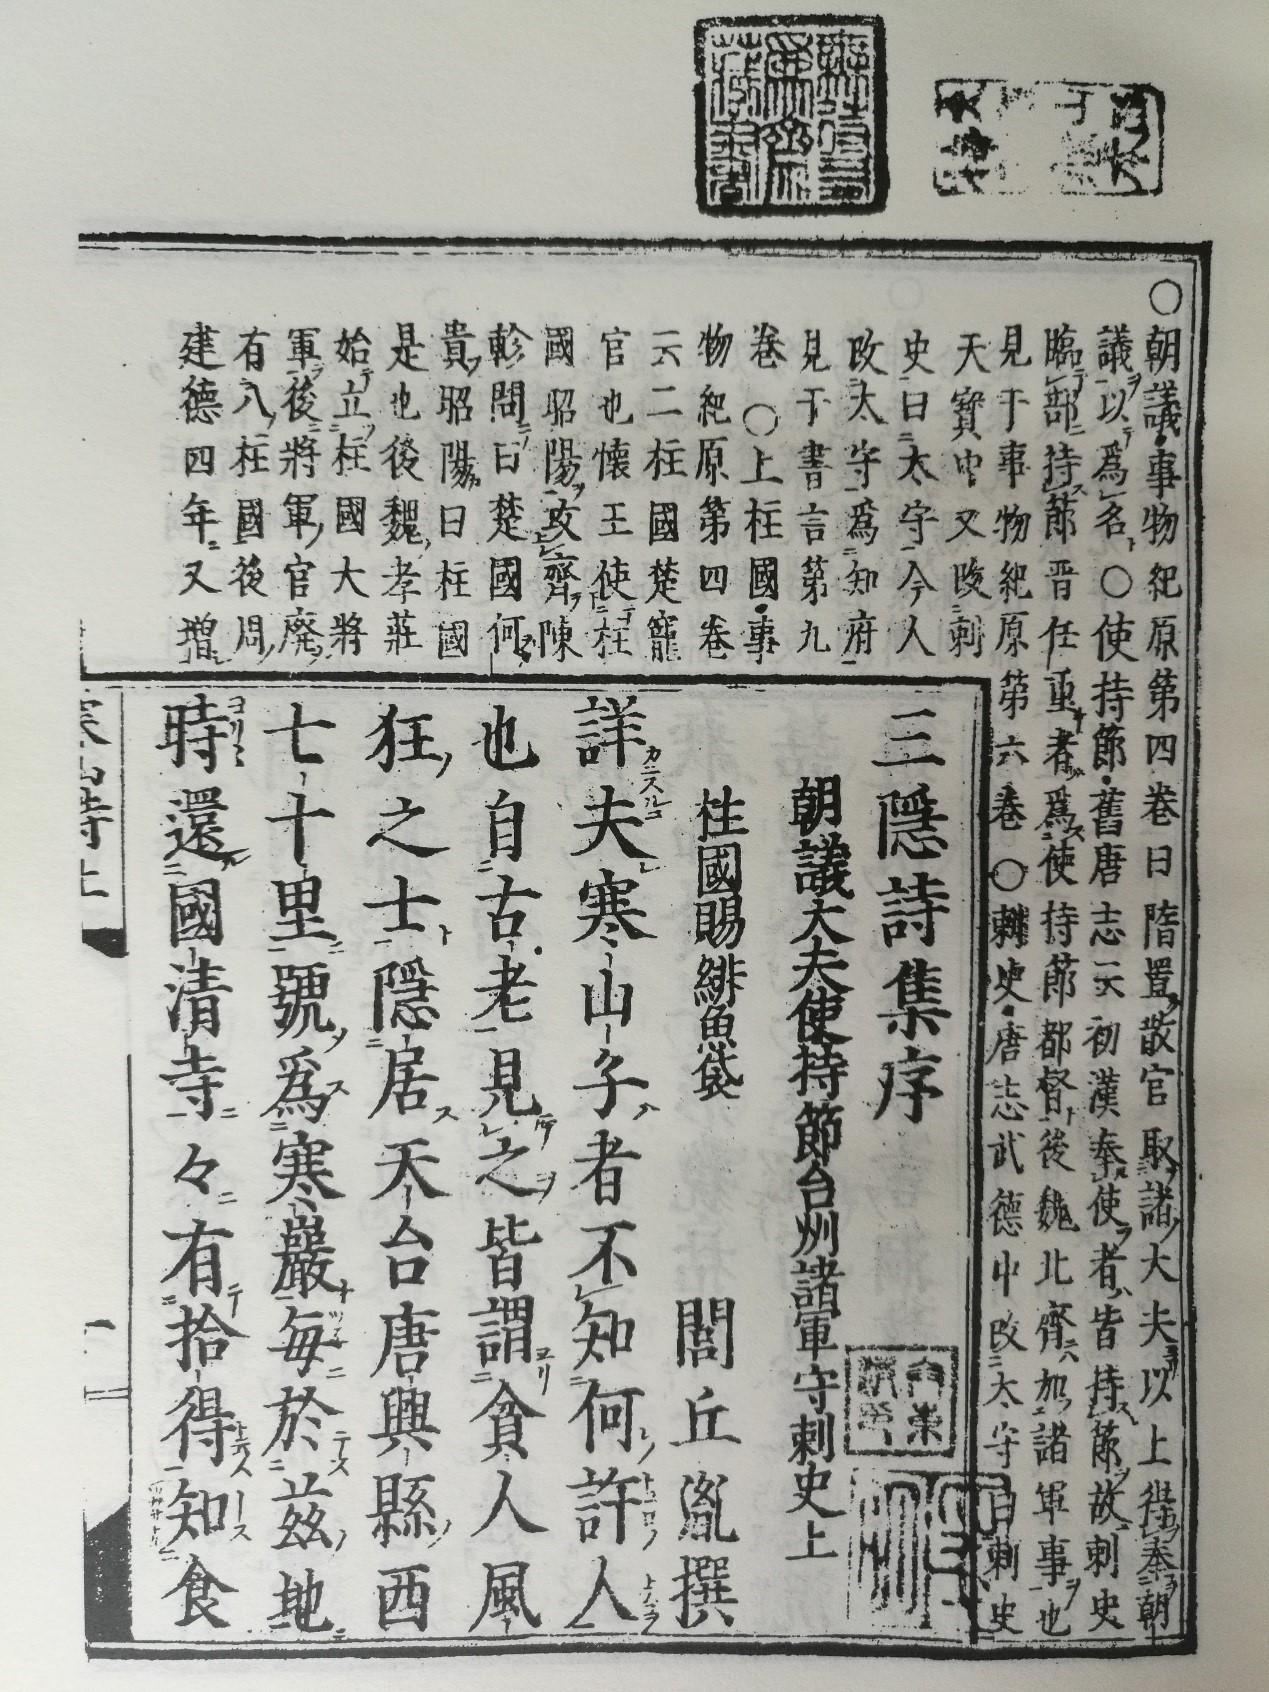 ○朝議事物紀原第四卷曰隋置散官取諸大夫以上得奉朝
議以爲名○使持節舊唐志云初漢奉使者皆持節故刺史
臨部持節晉任重者爲使持節都督後魏北齊加諸軍事也
見于事物紀原第六卷○刺史唐志武德中改太守曰刺史
天寶中又改刺
史曰太守今人
改太守爲知府
見于書言第九
卷○上柱國事
物紀原第四卷
云二柱國楚寵
官也懷王使柱
國昭陽攻齊陳
軫問曰楚國何
貴昭陽曰柱國
是也後魏孝莊
始立柱國大將
軍後將軍官廢
有八柱國後周
建德四年又增
三隱詩集序
朝議大夫使持節台州諸軍守刺史上
柱國賜緋魚袋
閭丘胤撰
詳夫寒山子者不知何許人
也自古老見之皆謂貧人風
狂之士隱居天台唐興縣西
七十里號爲寒巖每於茲地
時還國清寺々有拾得知食
寒山詩上
一